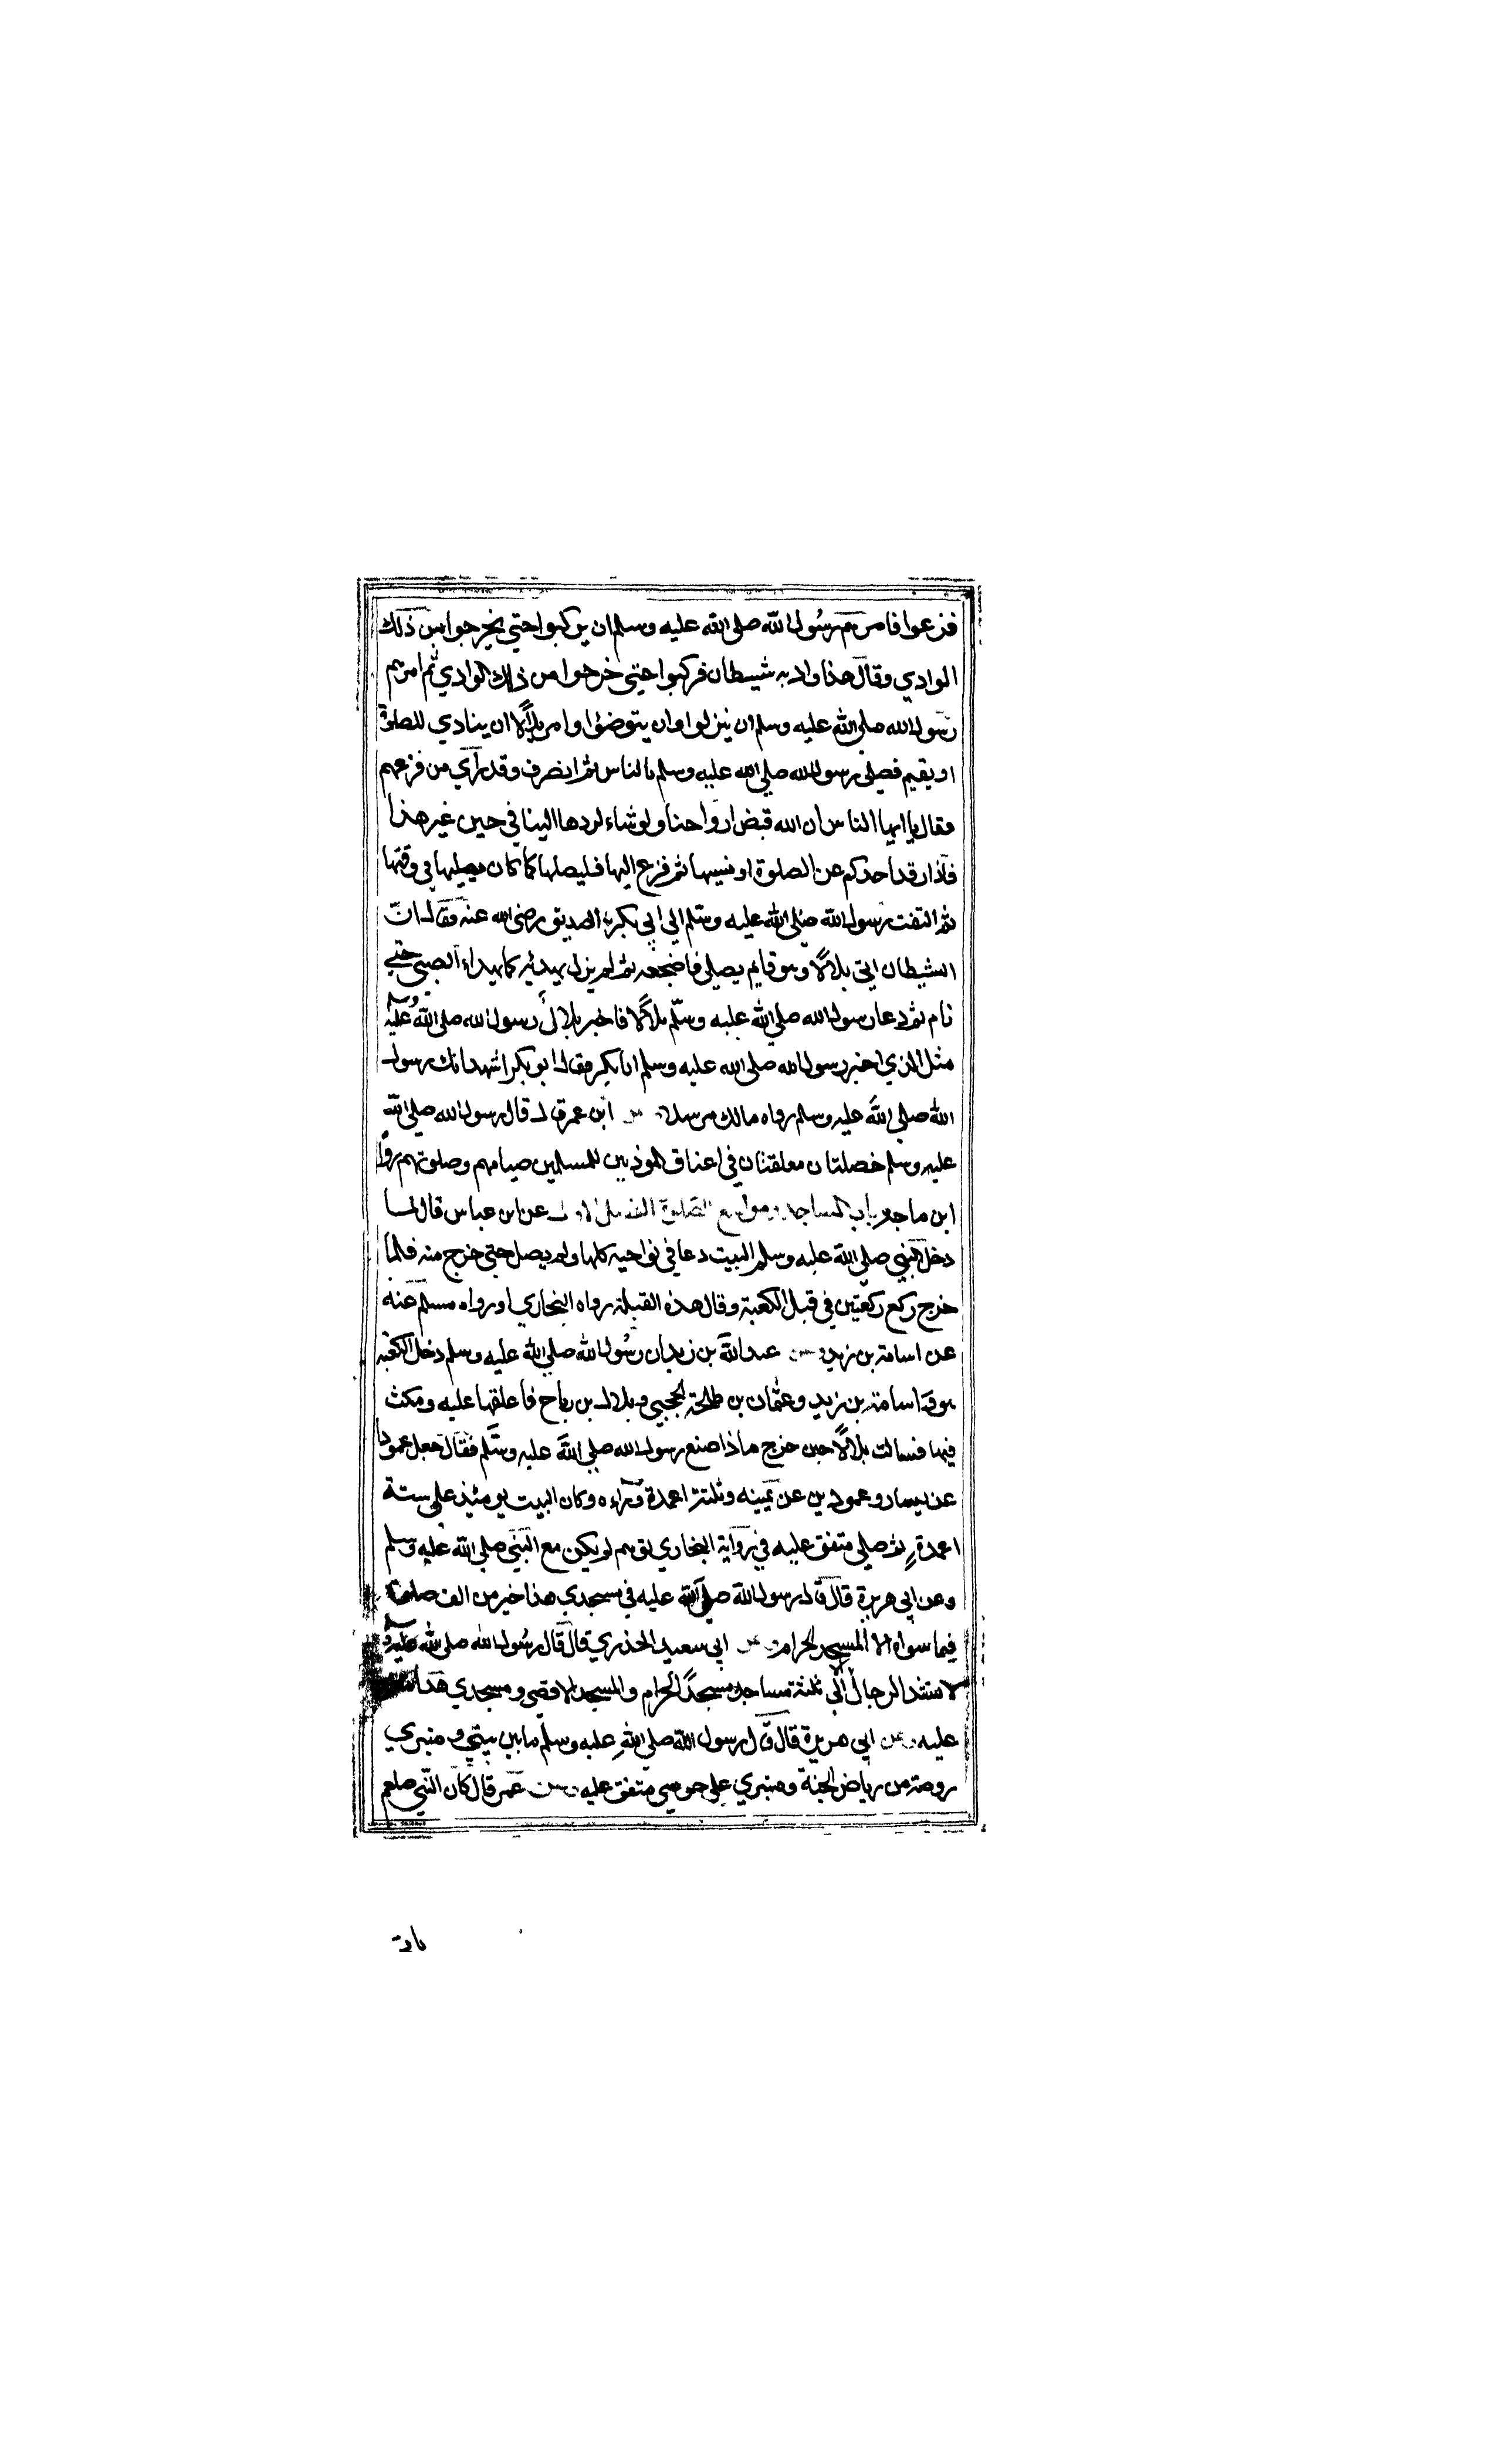 فزعوا فامرهم رسول الله صلى الله عليه وسلم ان يركبوا حتي يخرجوا من ذلك
الوادي وقال هذا واد به شيطان فركبوا حتي خرجوا من ذلك الوادي ثم امرهم
رسول الله صلي الله عليه وسلم ان ينزلوا وان يتوضؤا وامر بلالا ان ينادي للصلوة
او يقيم فصلي رسول الله صلي الله عليه وسلم بالناس ثم انصرف وقد رآي من فزعهم
فقال يا ايها الناس ان الله قبض ارواحنا ولو شاء لردها الينا في حين غير هذا
فاذا رقد احدكم عن الصلوة او نسيها ثم فزع اليها فليصلها كما كان يصليها في وقتها
ثم التفت رسول الله صلي الله عليه وسلم الي ابي بكر الصديق رضي الله عنه فقال ان
الشيطان اتي بلالا وهو قايم يصلي فاضجعه ثم لم يزل يهدئه كما يهداء الصبي حتي
نام ثم دعا رسول الله صلي الله عليه وسلم بلالا فاخبر بلال رسول الله صلي الله عليه وسلم
مثل الذي اخبر رسول الله صلي الله عليه وسلم ابا بكر فقال ابو بكر اشهد انك رسول
الله صلي الله عليه وسلم رواه مالك مرسلا عن ابن عمر قال قال رسول الله صلي الله
عليه وسلم خصلتان معلقتان في اعناق الموذنين للمسلمين صيامهم وصلوتهم رواه
ابن ماجه باب المساجد ومواضع الصلوة الفصل الاول عن ابن عباس قال لما
دخل النبي صلي الله عليه وسلم البيت دعا في نواحيه كلها ولم يصل حتي خرج منه فلما
خرج ركع ركعتين في قبل الكعبة وقال هذه القبلة رواه البخاري ورواه مسلم عنه
عن اسامة بن زيد وعن عبد الله بن زيد ان رسول الله صلي الله عليه وسلم دخل الكعبة
هو واسامة بن زيد وعثمان بن طلحة الحجبي وبلال بن رباح فاغلقها عليه ومكث
فيها فسالت بلالا حين خرج ماذا صنع رسول الله صلي الله عليه وسلم فقال جعل عمودا
عن يساره وعمودين عن يمينه وثلثة اعمدة وراءه وكان البيت يومئذ علي ستة
اعمدة ثم صلي متفق عليه في رواية البخاري لو يكن مع النبي صلي الله عليه وسلم
وعن ابي هريرة قال قال رسول الله صلي الله عليه في مسجدي هذا خير من الف صلوة
فيما سواه الا المسجد الحرام وعن ابي سعيد الخذري قال قال رسول الله صلي الله عليه وسلم
لا تشد الرحال الي ثلثة مساجد مسجد الحرام والمسجد الاقصي ومسجدي هذا
عليه وعن ابي هريرة قال قال رسول الله صلي الله عليه وسلم ما بين بيتي ومنبري
روضة من رياض الجنة ومنبري علي حوضي متفق عليه وعن عمر قال كان النبي صلعم